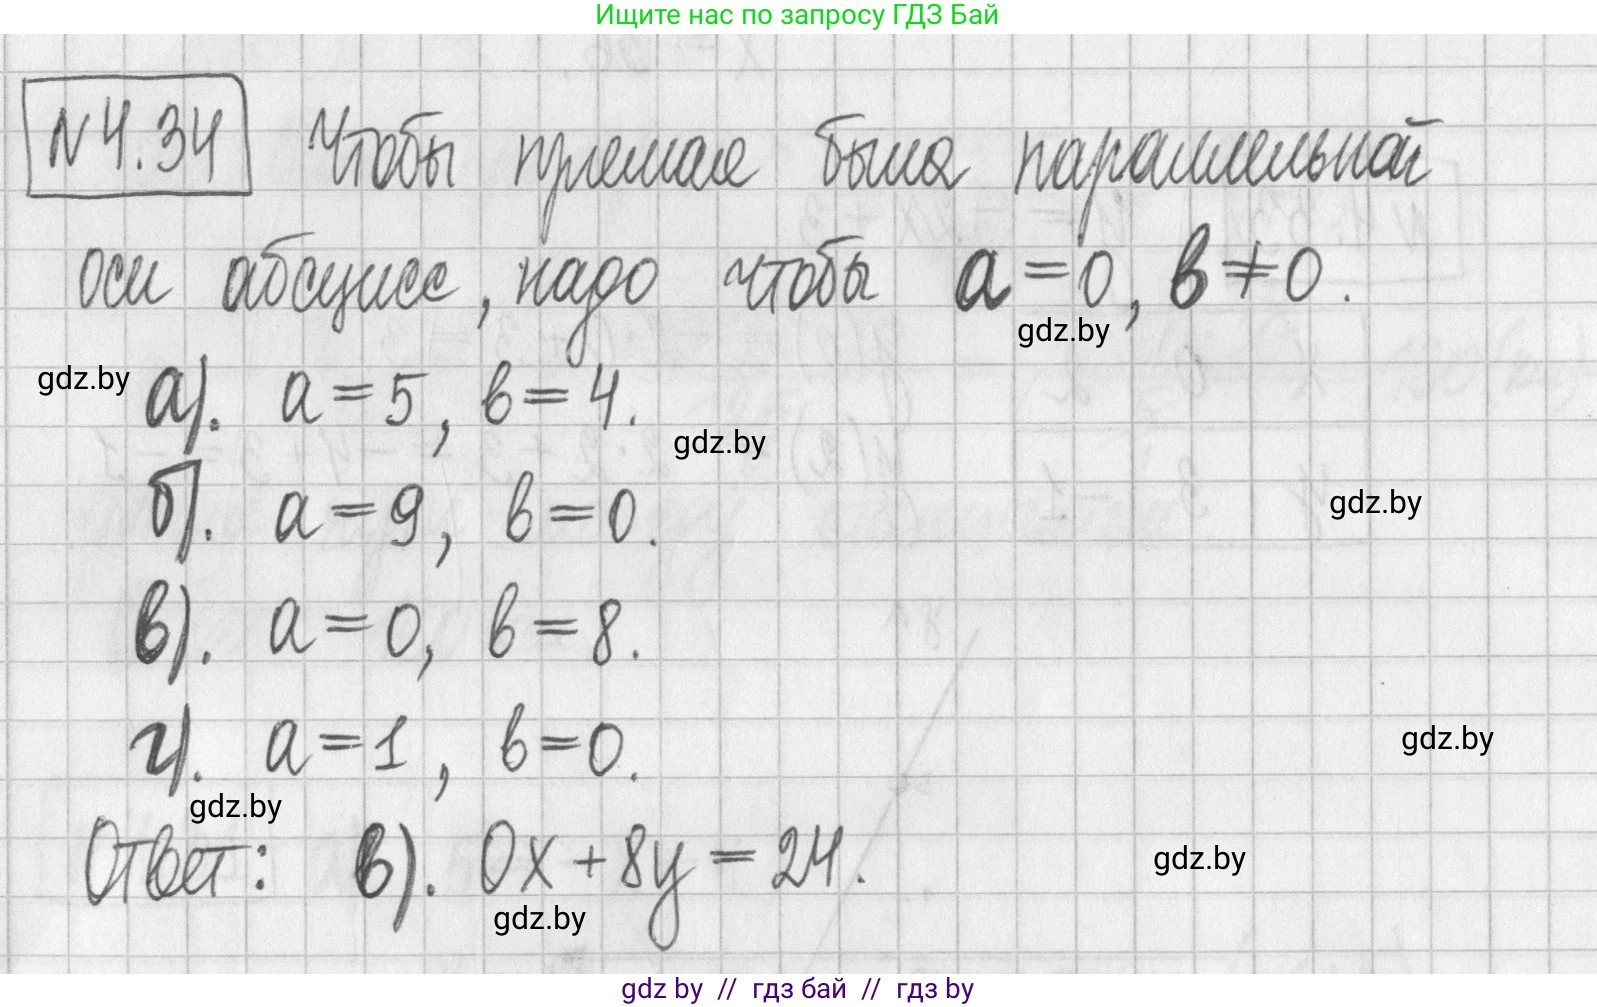 Ищите нас по запросу ГДЗ Бай
N4.34 Чтобы прямая была параллельной
оси абсцисс, надо чтобы a=0, b≠0.
gdz.by
gdz.by а). a=5, b=4.
gdz.by
б). a=9, b=0.
gdz.by
в). a=0, b=8.
г). a=1, b=0.
gdz.by
gdz.by
Ответ: в). 0x+8y=24.
gdz.by
gdz.by
gdz by // гдз бай // гдз by